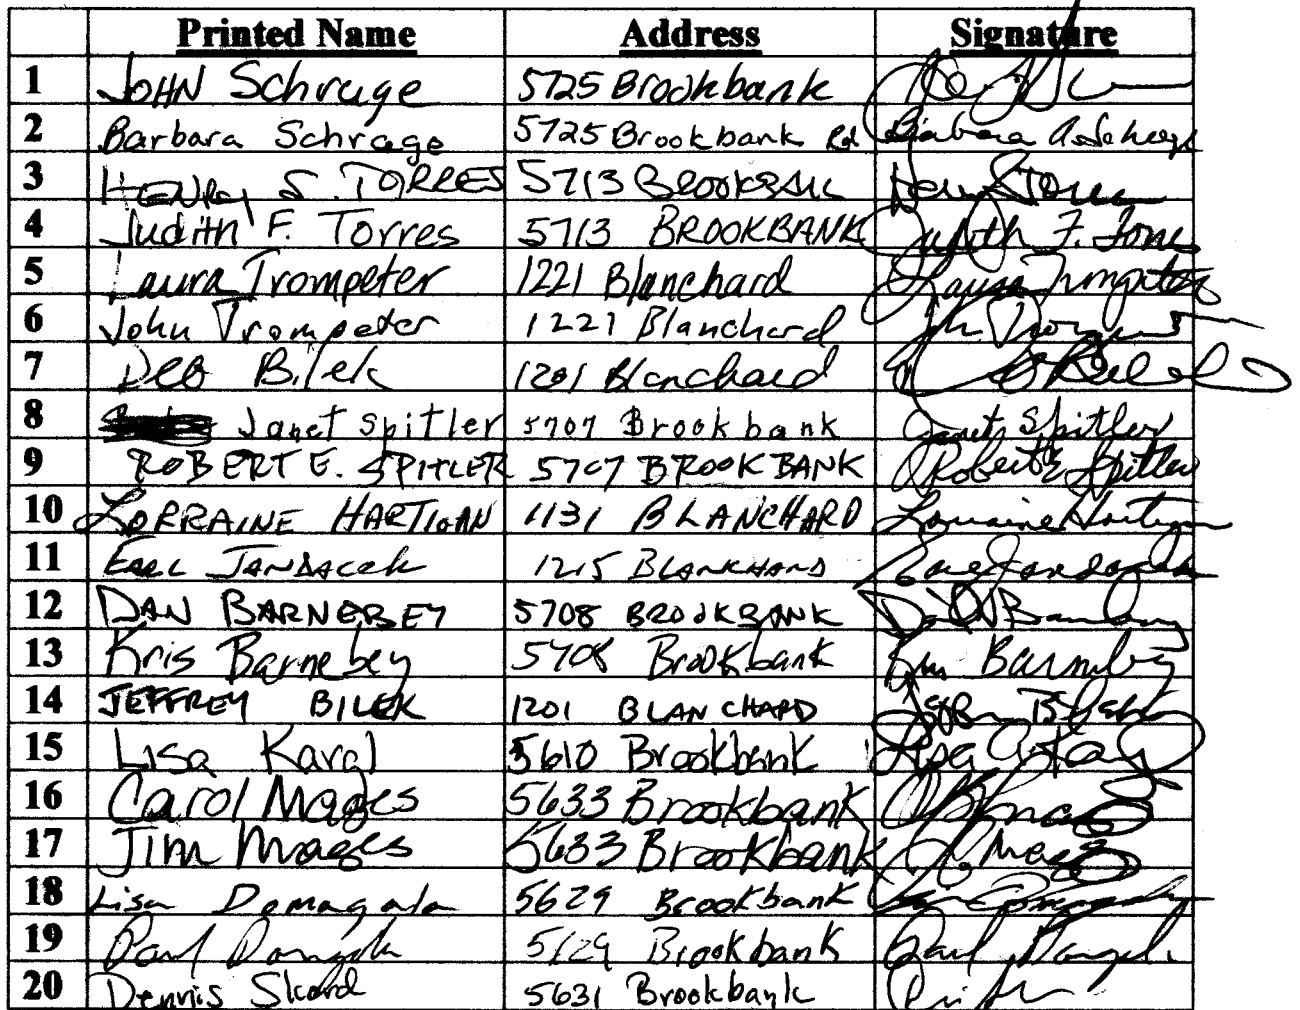 Printed Name Address Signature
1 JOHN Schrage 5725 Brookbank
2 Barbara Schrage 5725 Brookbank Rd Barbara A. Schrage
3 HENRY S. TORRES 5713 Henry S Torres
4 Judith F. Torres 5713 BROOKBANK Judith F. Torres
5 Laura Trompeter 1221 Blanchard Laura Trompeter
6 John Trompeter 1221 Blanchard
7 Deb Bilek 1201 Blanchard
8 Janet Spitler 5707 Brookbank Janet Spitler
9 ROBERT E. SPITLER 5707 BROOKBANK Robert E Spitler
10 LORRAINE HARTIGAN 1131 BLANCHARD Lorraine Hartigan
11 EARL JANDACEK 1215 BLANKHARD Earl Jandacek
12 DAN BARNEBEY 5708 BROOKBANK
13 Kris Barnebey 5708 Brookbank Kris Barnebey
14 JEFFREY BILEK 1201 BLANCHARD
15 Lisa Karal 5610 Brookbank Lisa
16 Carol Mages 5633 Brookbank
17 Jim Mages 5633 Brookbank
18 Lisa Domagala 5629 Brookbank
19 Paul 5629 Brookbank Paul
20 Dennis Skord 5631 Brookbank